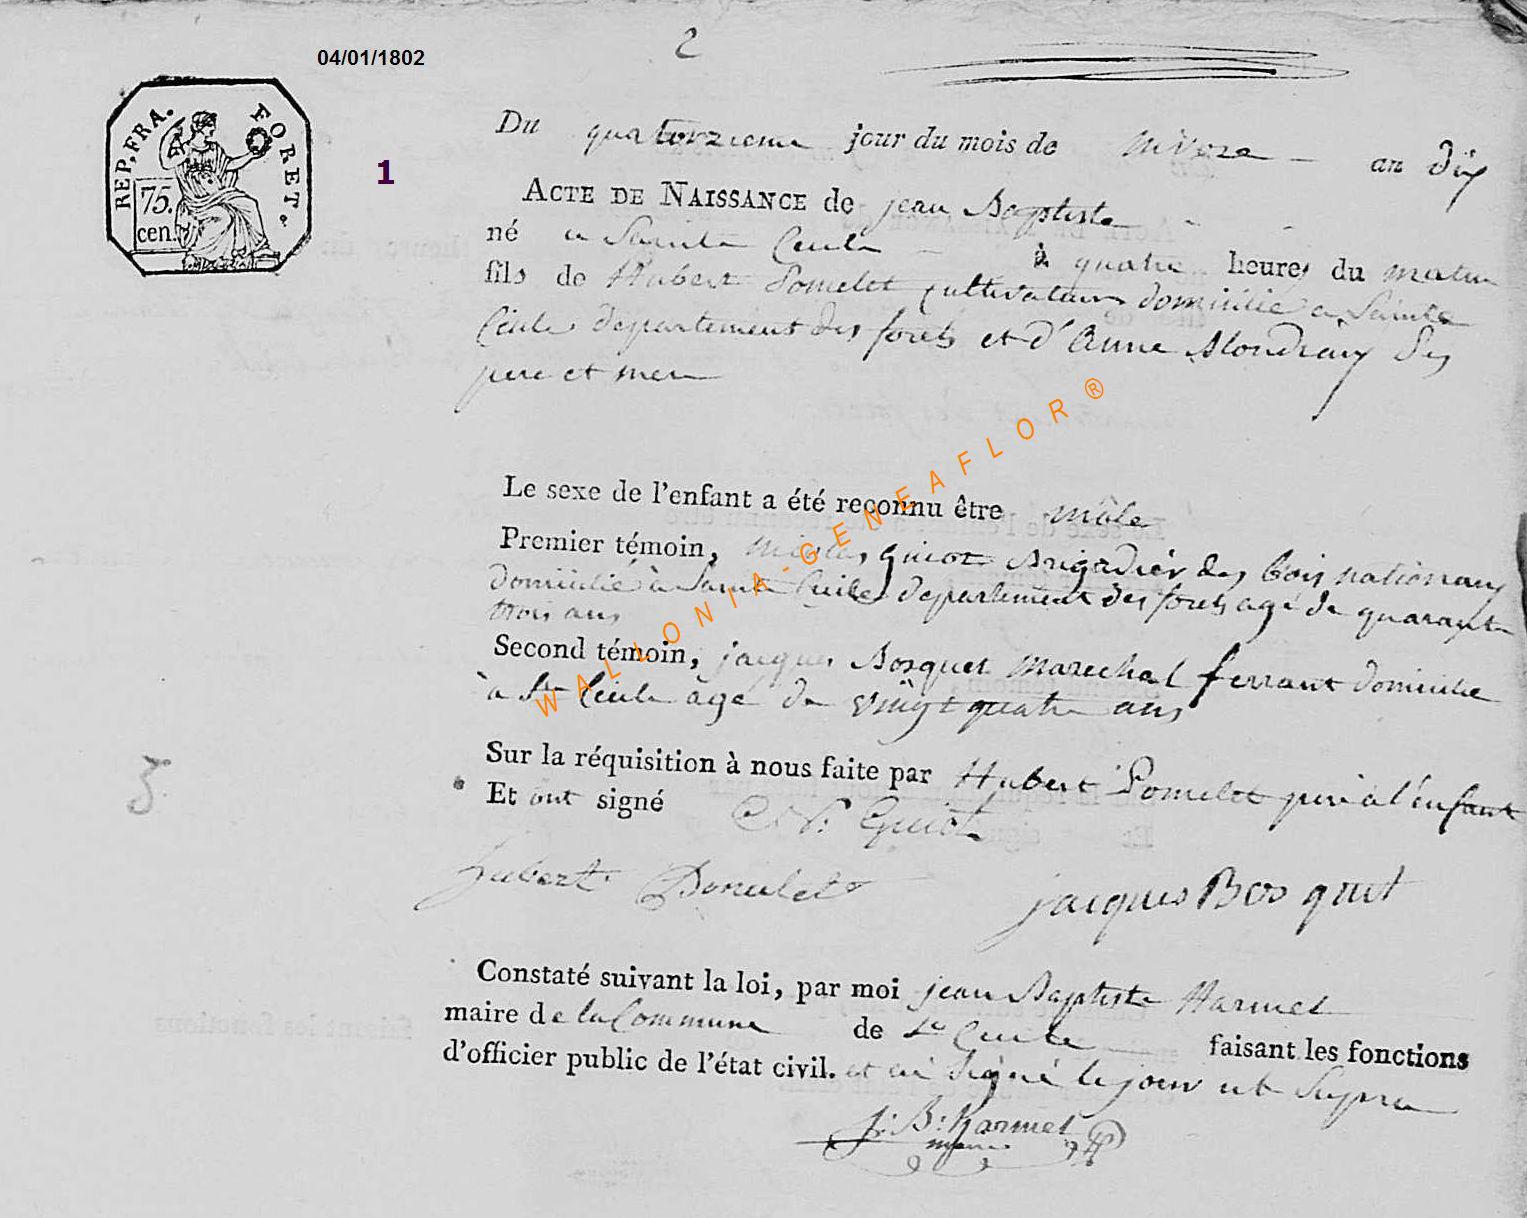 2
04/01/1802
REP. FRA. FORET.
75.
cen.
1
Du quatorzieme jour du mois de nivose an dix
ACTE DE NAISSANCE de jean Baptiste
né a Sainte Cecile à quatre heures du matin
fils de Hubert Pomelet cultivateur domicilié a Sainte
Cecile departement des forets et d'Anne Mondiaux Ses
pere et mere
Le sexe de l'enfant a été reconnu être mâle
Premier témoin, nicolas guiot Brigadier des bois nationaux
domicilié à Sainte Cecile departement des forets agé de quarante
trois ans
Second témoin, jacques Bosquet marechal ferrant domicilié
à Ste Cecile agé de vingt quatre ans
Sur la réquisition à nous faite par Hubert Pomelet pere à l'enfant
Et ont signé N: Guiot
hubert Pomelet jacques Bosquet
3
Constaté suivant la loi, par moi jean Baptiste Harmel
maire de la Commune de Ste Cecile faisant les fonctions
d'officier public de l'état civil. et ai signé le jour ut Supra
J: B: Harmel
maire
WALLONIA-GENEAFLOR®